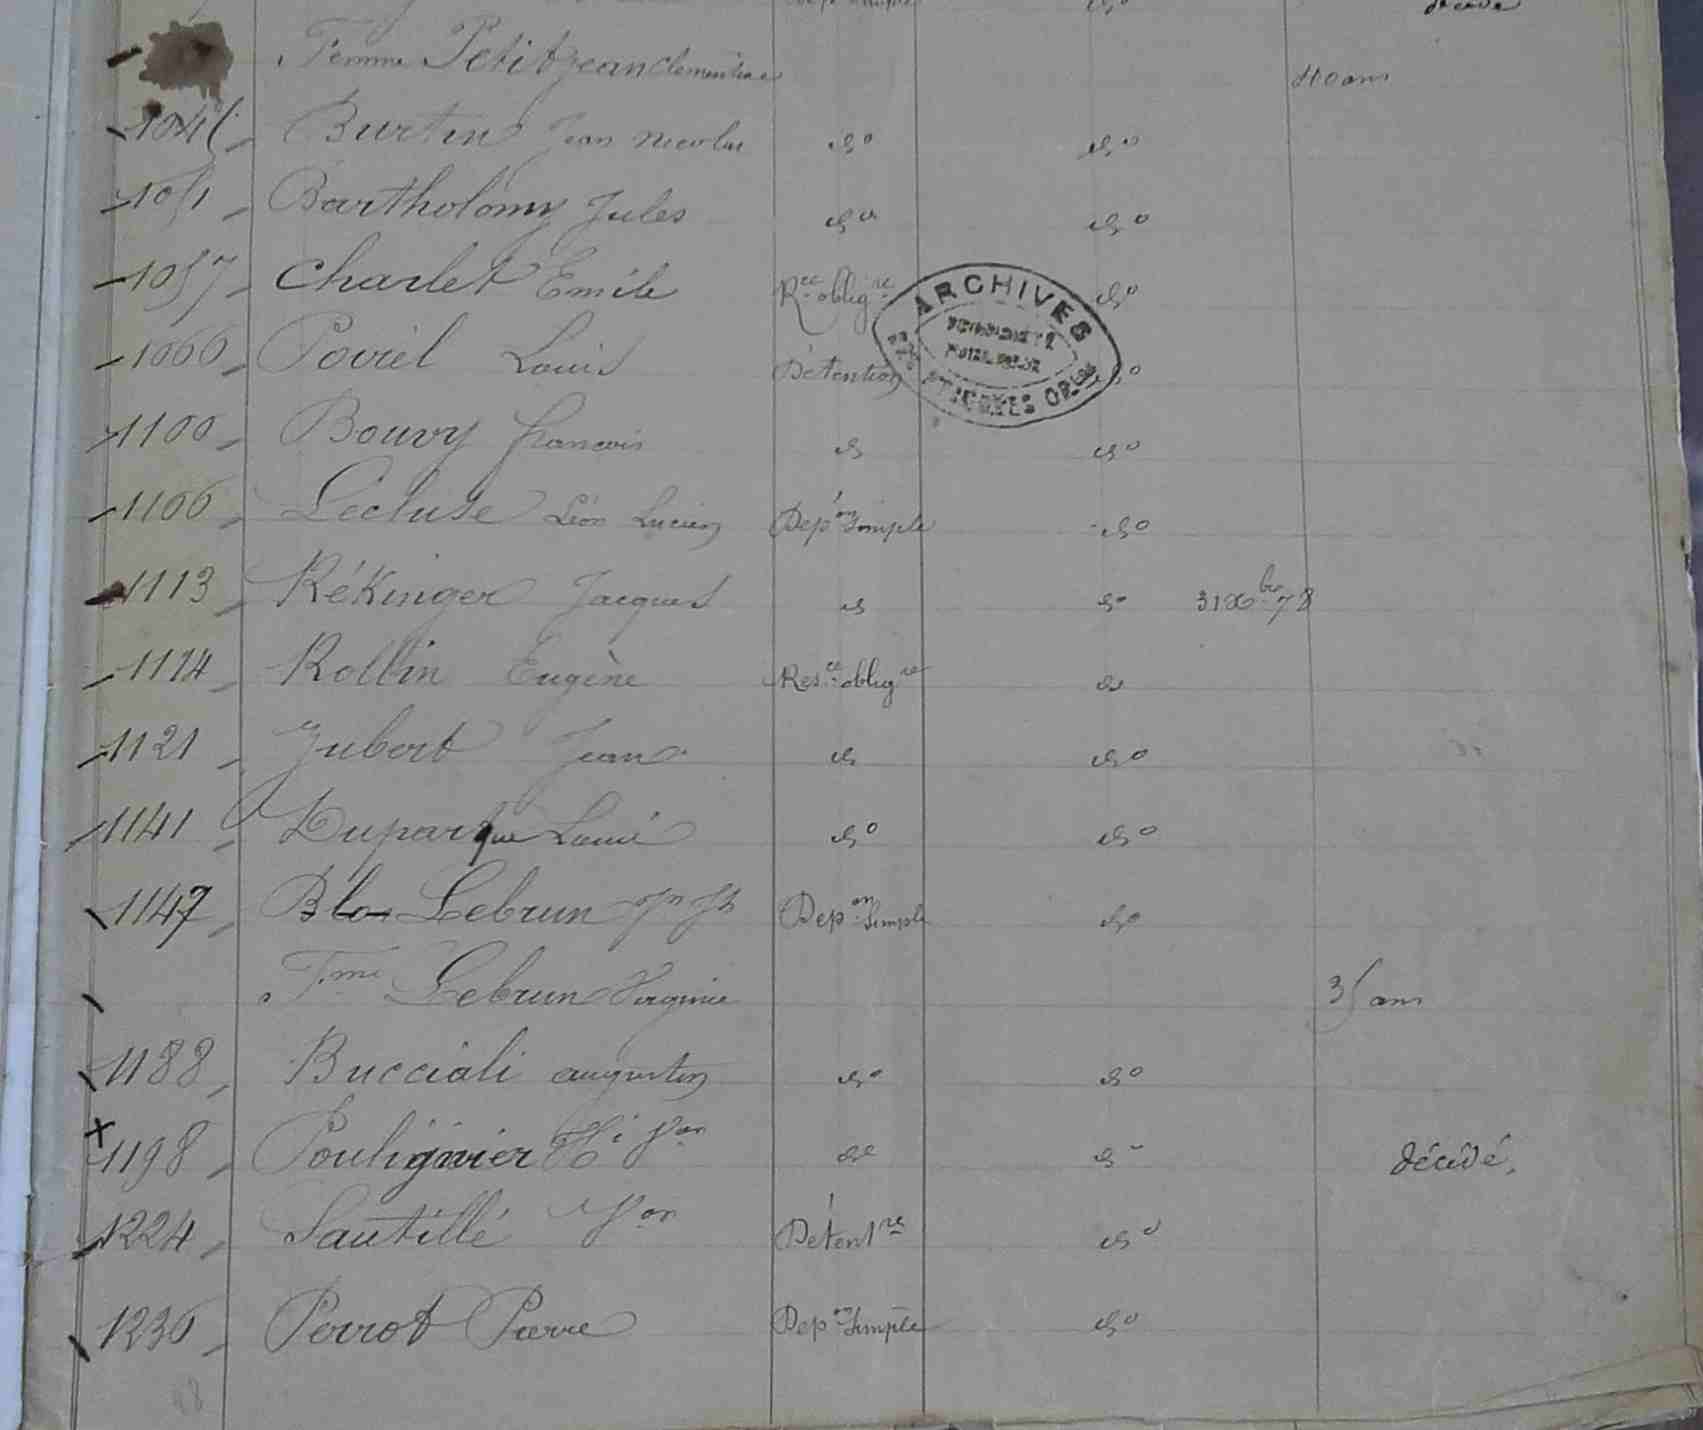 Depon Simple do décédé
Femme Petitjean Clementine 40 ans
Burtin Jean Nicolas do do
1051 Bartholomy Jules do do
1057 Charlet Emile Rce obligre do
1060 Poviel Louis Détention do
ARCHIVES
1100 Bouvy francois d do
1106 Lécluse Léon Lucien Depon Simple do
1113 Rékinger Jacques d do 31 Xbre 78
1114 Rollin Eugène Resce obligre do
1121 Jubert Jean d do
1141 Duparque Louis do do
1147 Blon Lebrun Jn Jh Depon Simple do
Fme Lebrun Virginie 35 ans
1188 Bucciali augustin do do
1198 Poulignier Hi Von do do décédé
1224 Sautillé Von Détentre do
1236 Perrot Pierre Depon Simple do